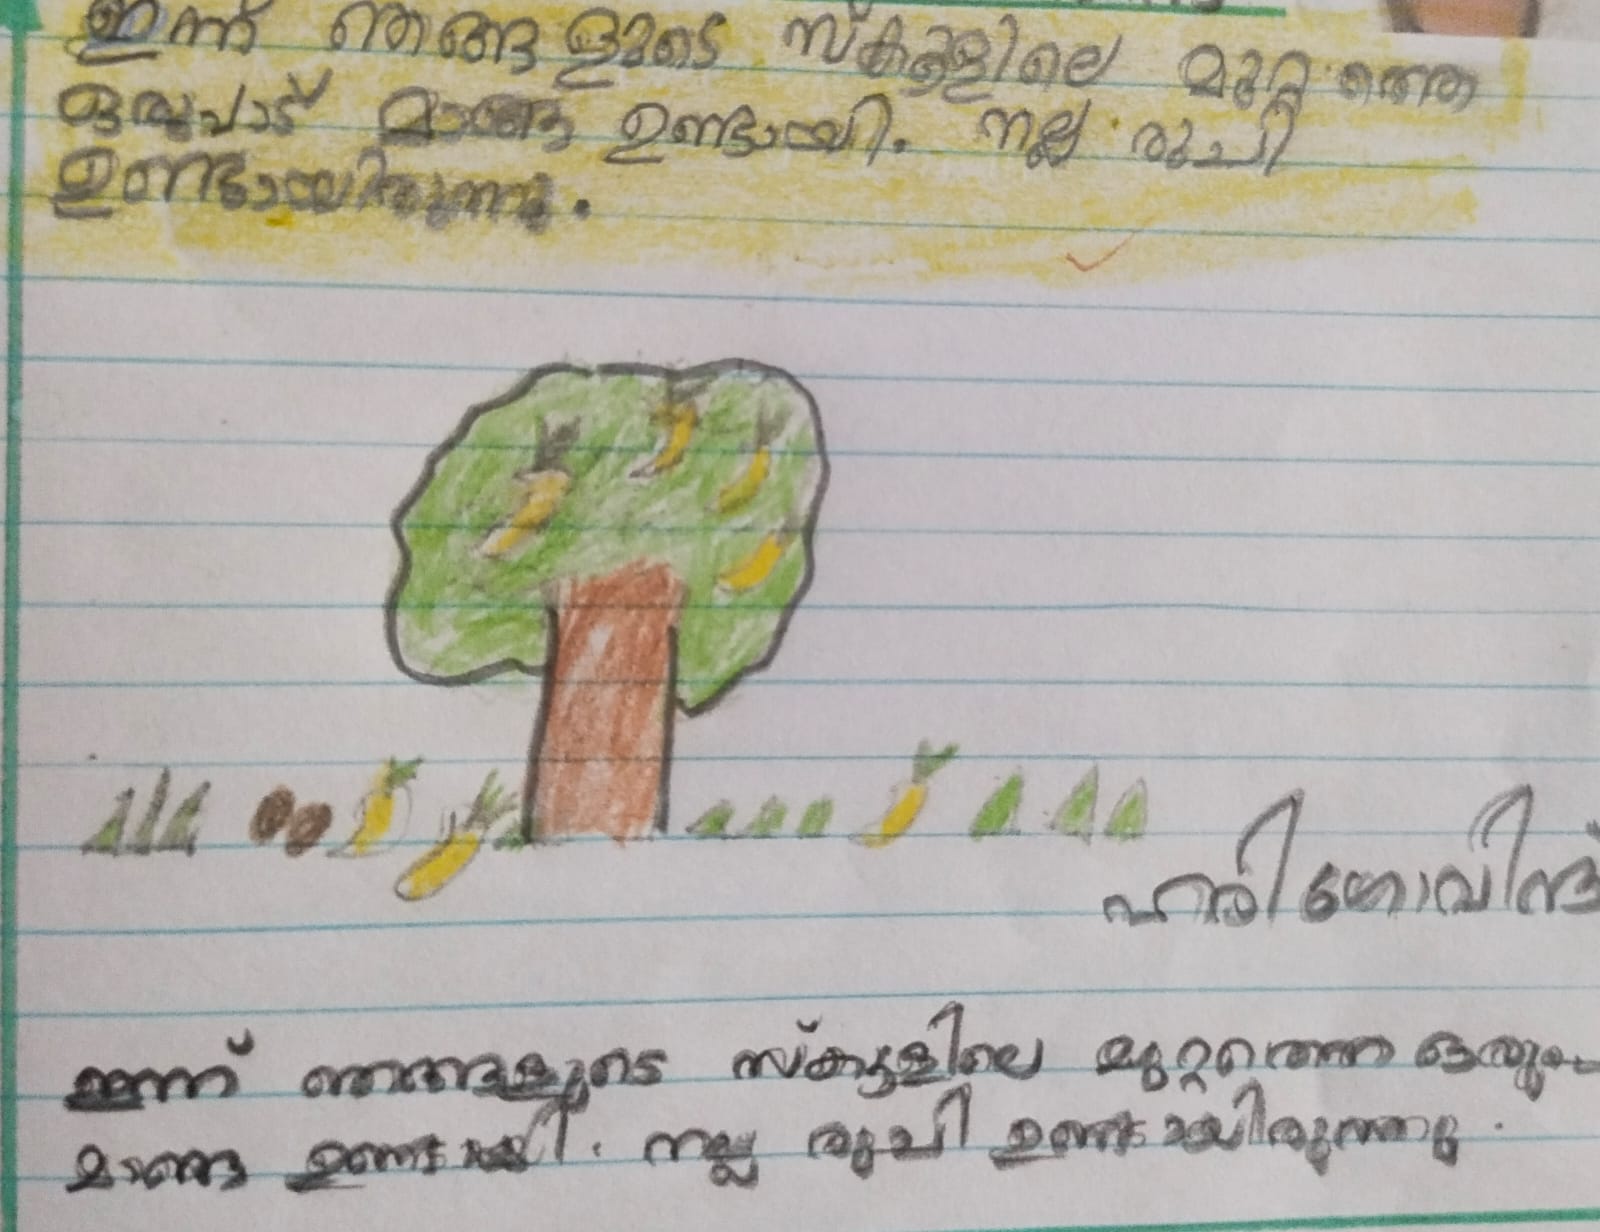 ഇന്ന് ഞങ്ങളുടെ സ്കൂളിലെ മുറ്റത്തെ
ഒരുപാട് മാങ്ങ ഉണ്ടായി. നല്ല രുചി
ഉണ്ടായിരുന്നു.
ഹരി ഗോവിന്ദ്
ഇന്ന് ഞങ്ങളുടെ സ്കൂളിലെ മുറ്റത്തെ
മാങ്ങ ഉണ്ടായി. നല്ല രുചി ഉണ്ടായിരുന്നു.